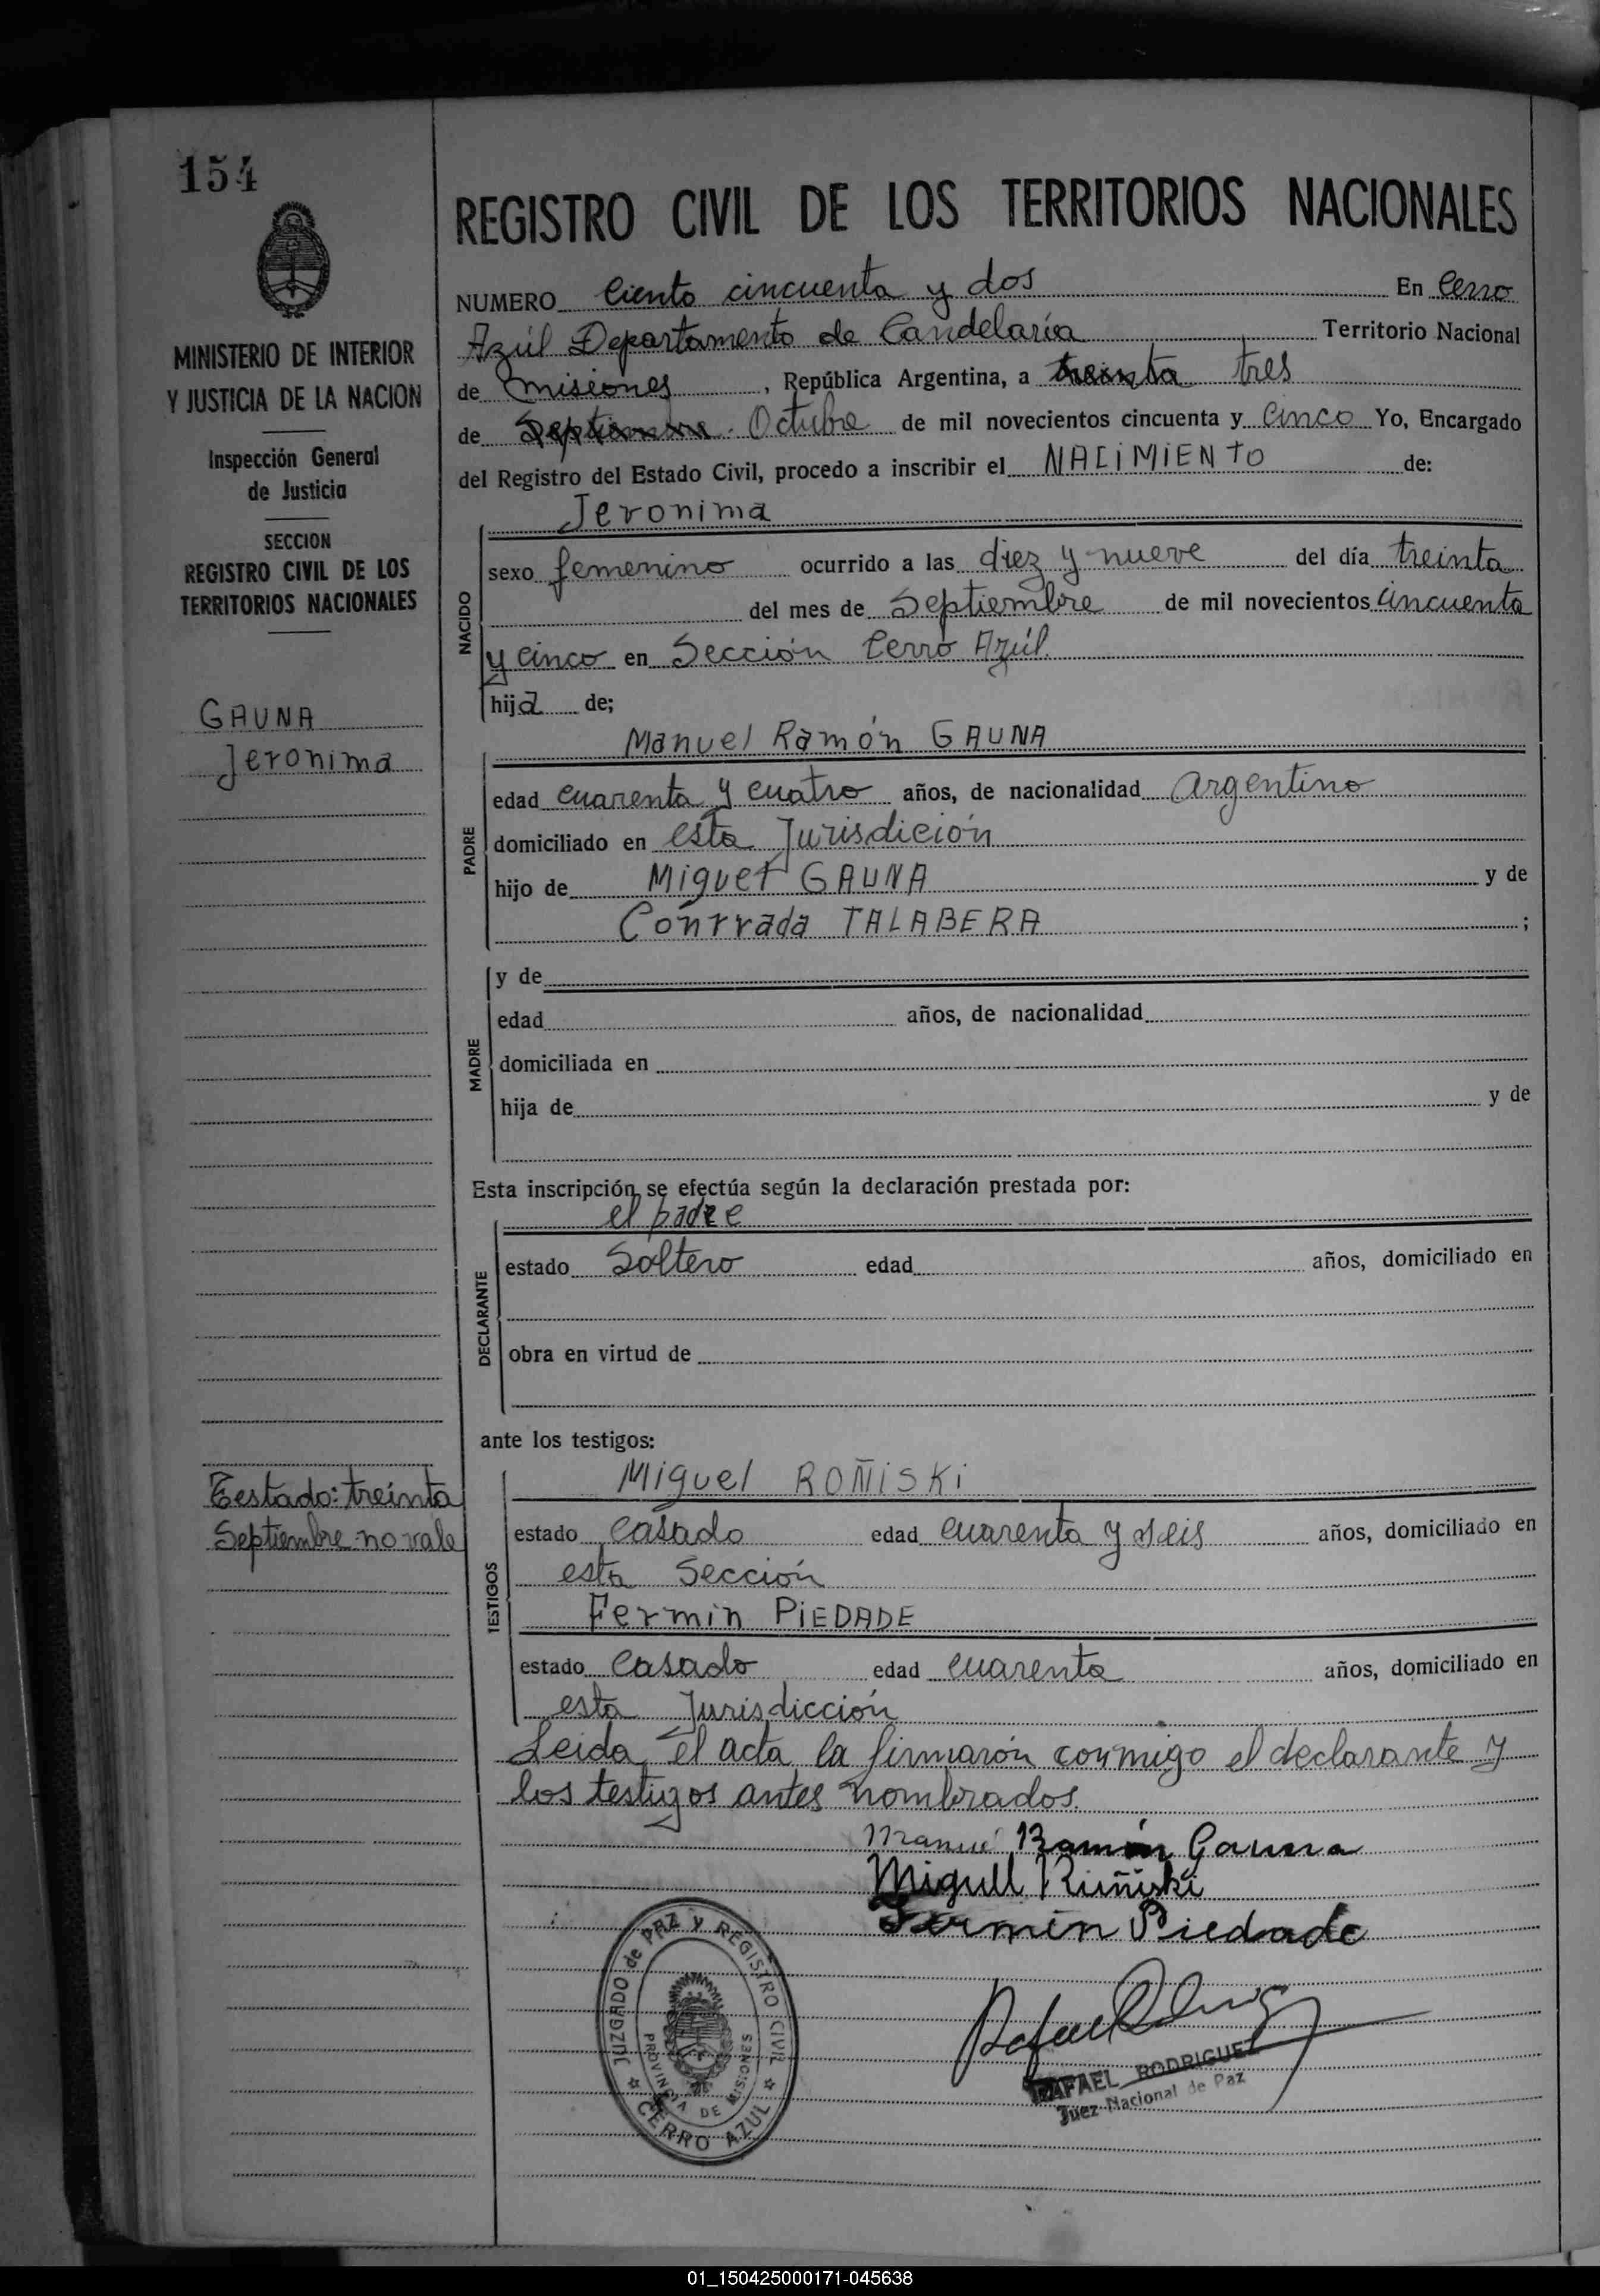 154
MINISTERIO DE INTERIOR
Y JUSTICIA DE LA NACION
Inspección General
de Justicia
SECCION
REGISTRO CIVIL DE LOS
TERRITORIOS NACIONALES
GAUNA
Jeronima
Testado: treinta
Septiembre no vale
REGISTRO CIVIL DE LOS TERRITORIOS NACIONALES
NUMERO Ciento cincuenta y dos En Cerro
Azúl Departamento de Candelaria Territorio Nacional
de Misiones, República Argentina, a treinta tres
de Septiembre Octubre de mil novecientos cincuenta y cinco Yo, Encargado
del Registro del Estado Civil, procedo a inscribir el NACIMIENTO de:
Jeronima
NACIDO
sexo femenino ocurrido a las diez y nueve del día treinta
del mes de Septiembre de mil novecientos cincuenta
y cinco en Sección Cerro Azúl.
hija de;
Manuel Ramón GAUNA
PADRE
edad cuarenta y cuatro años, de nacionalidad argentino
domiciliado en esta Jurisdición
hijo de Miguel GAUNA y de
Conrrada TALABERA ;
MADRE
y de
edad años, de nacionalidad
domiciliada en
hija de y de
Esta inscripción se efectúa según la declaración prestada por:
el padre
DECLARANTE
estado Soltero edad años, domiciliado en
obra en virtud de
ante los testigos:
Miguel ROÑISKI
TESTIGOS
estado casado edad cuarenta y seis años, domiciliado en
esta Sección
Fermin PIEDADE
estado casado edad cuarenta años, domiciliado en
esta Jurisdicción
Leida el acta la firmarón conmigo el declarante y
los testigos antes nombrados.
Ramón Gauna
Miguel
Fermin Piedade
JUZGADO de PAZ Y REGISTRO CIVIL
PROVINCIA DE MISIONES
CERRO AZUL
RAFAEL RODRIGUEZ
Juez Nacional de Paz
01_150425000171-045638